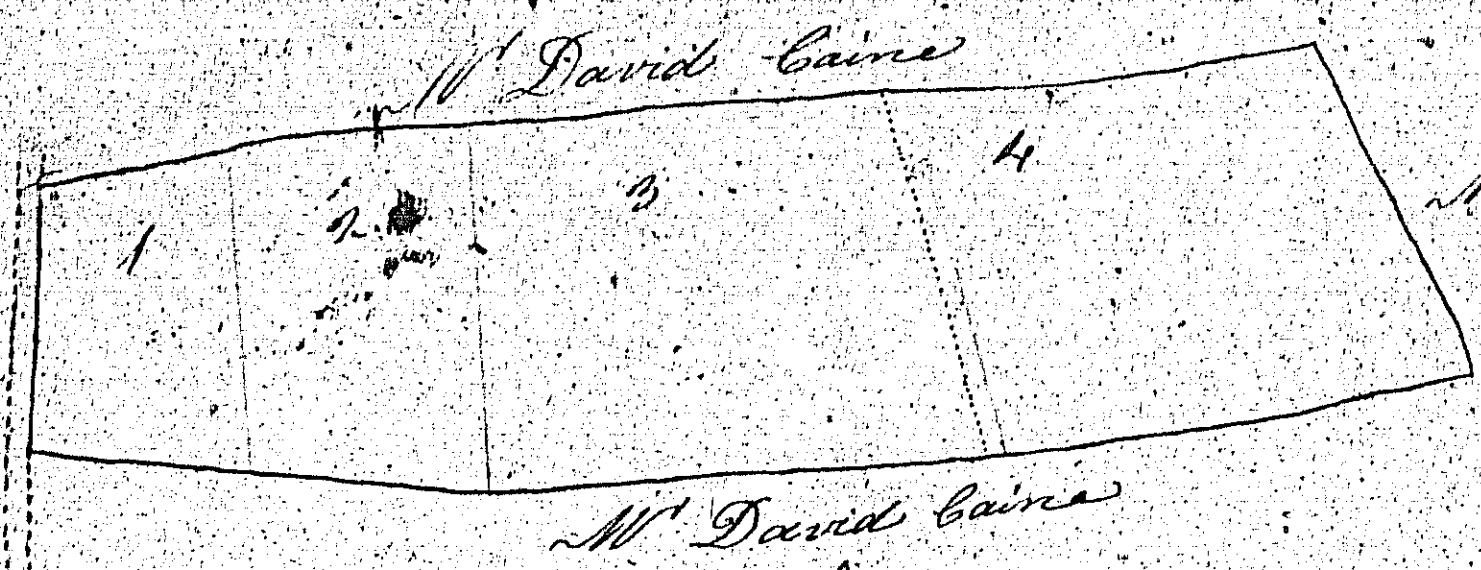 Mr David Caine
1
2
3
4
Mr David Caine